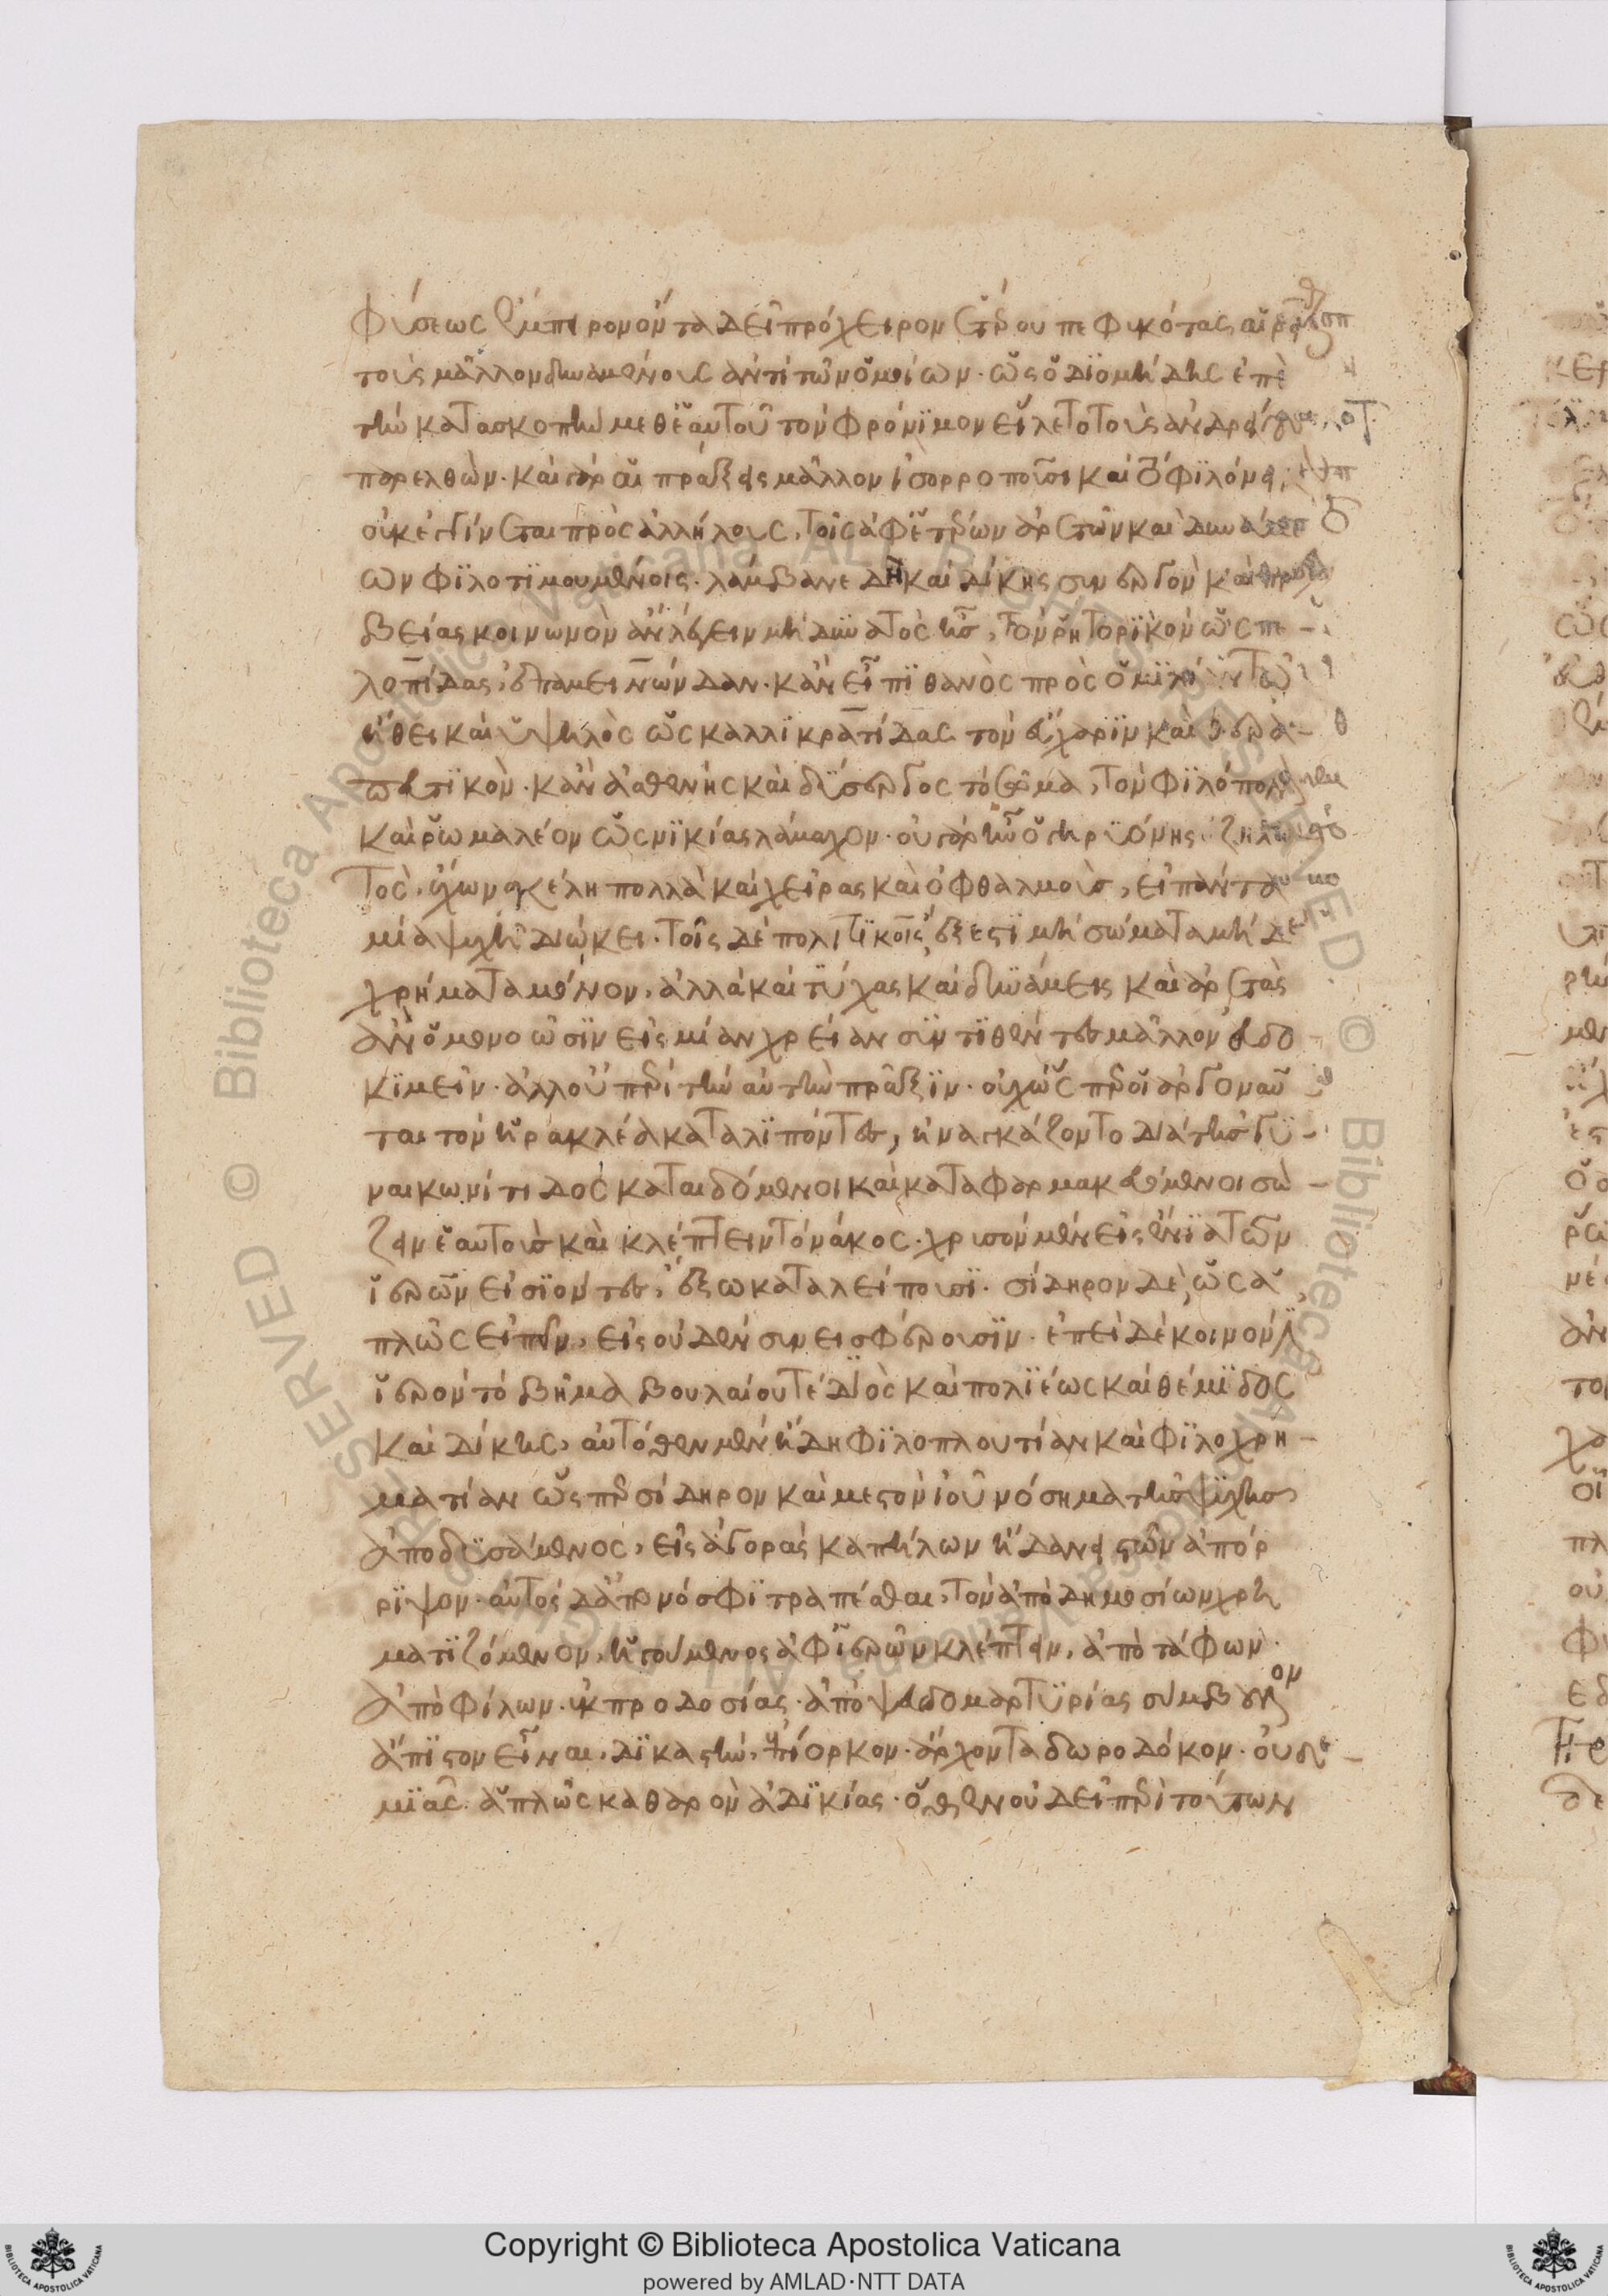 φύσεως ἐμπειρον ὄντα δεῖ πρόχειρον ἑτέρου πεφυκότας αἱρεῖσθαι
τοὺς μᾶλλον δυναμένους ἀντὶ τῶν ὁμοίων· ὡς ὁ Διομήδης ἐπὶ
τὴν κατασκοπὴν μεθ' ἑαυτοῦ τὸν φρόνιμον εἵλετο τοὺς ἀνδρείους
παρελθών· καὶ γὰρ αἱ πράξεις μᾶλλον ἰσορροποῦσι καὶ τὸ φιλόνεικον
οὐκ ἐγγίνεται πρὸς ἀλλήλους, τοῖς ἀφ' ἑτέρων ἀρετῶν καὶ δυνάμε
ων φιλοτιμουμένοις· λάμβανε δὴ καὶ δίκης συνεργὸν καὶ πρεσ
βείας κοινωνὸν ἂν λέγειν μὴ δυνατὸς ᾖς, τὸν ῥητορικὸν ὡς Πε
λοπίδας, Ἐπαμεινώνδαν· κἂν εἶ πιθανὸς πρὸς ὁμιλίαν τῷ
ἤθει καὶ ὑψηλὸς ὡς Καλλικρατίδας τὸν εὔχαριν καὶ θερα
πευτικόν· κἂν ἀσθενὴς καὶ δύσεργος τὸ σῶμα, τὸν φιλόπονον
καὶ ῥωμαλέον ὡς Νικίας Λάμαχον· οὐ γὰρ ἦν ὁ Γηρυόνης ζηλω
τός, ἔχων σκέλη πολλὰ καὶ χεῖρας καὶ ὀφθαλμοὺς, εἰ πάντα
μιᾷ ψυχῇ διώκει· τοῖς δὲ πολιτικοῖς ἔξεστι μὴ σώματα μὴ δὲ
χρήματα μόνον, ἀλλὰ καὶ τύχας καὶ δυνάμεις καὶ ἀρετὰς
ἂν ὁμονοῶσιν εἰς μίαν χρείαν συντιθέντες μᾶλλον εὐδο
κιμεῖν· ἄλλου περὶ τὴν αὐτὴν πρᾶξιν· οὐχ ὥσπερ οἱ ἀργοναῦ
ται τὸν Ἡρακλέα καταλιπόντες, ἠναγκάζοντο διὰ τῆς γυ
ναικωνίτιδος καταιδόμενοι καὶ καταφαρμακευόμενοι σώ
ζειν ἑαυτοὺς καὶ κλέπτειν τὸ νάκος· χρυσὸν μὲν εἰς ἔνια τῶν
ἱερῶν εἰσιόντες, ἔξω καταλείπουσι· σίδηρον δὲ, ὡς ἁ
πλῶς εἰπεῖν, εἰς οὐδὲν συνεισφέρουσιν· ἐπεὶ δὲ κοινόν
ἱερὸν τὸ βῆμα βουλαίου τε Διὸς καὶ πολιέως καὶ θέμιδος
καὶ δίκης, αὐτόθεν μὲν ἤδη φιλοπλουτίαν καὶ φιλοχρη
ματίαν ὥσπερ σίδηρον καὶ μεστὸν ἰοῦ νόσημα τῆς ψυχῆς
ἀποδυσάμενος, εἰς ἀγορὰς καπήλων ἢ δανειστῶν ἀπόρ
ριψον· αὐτὸς δ' ἀπονόσφι τραπέσθαι, τὸν ἀπὸ δημοσίων χρη
ματιζόμενον, ἡγούμενος ἀφ' ἱερῶν κλέπτειν, ἀπὸ τάφων·
ἀπὸ φίλων· ἐκ προδοσίας· ἀπὸ ψευδομαρτυρίας σύμβουλον
ἄπιστον εἶναι, δικαστὴν, ἐπίορκον· ἄρχοντα δωροδόκον· οὐδε
μιᾶς ἁπλῶς καθαρὸν ἀδικίας· ὅθεν οὐ δεῖ περὶ τούτων